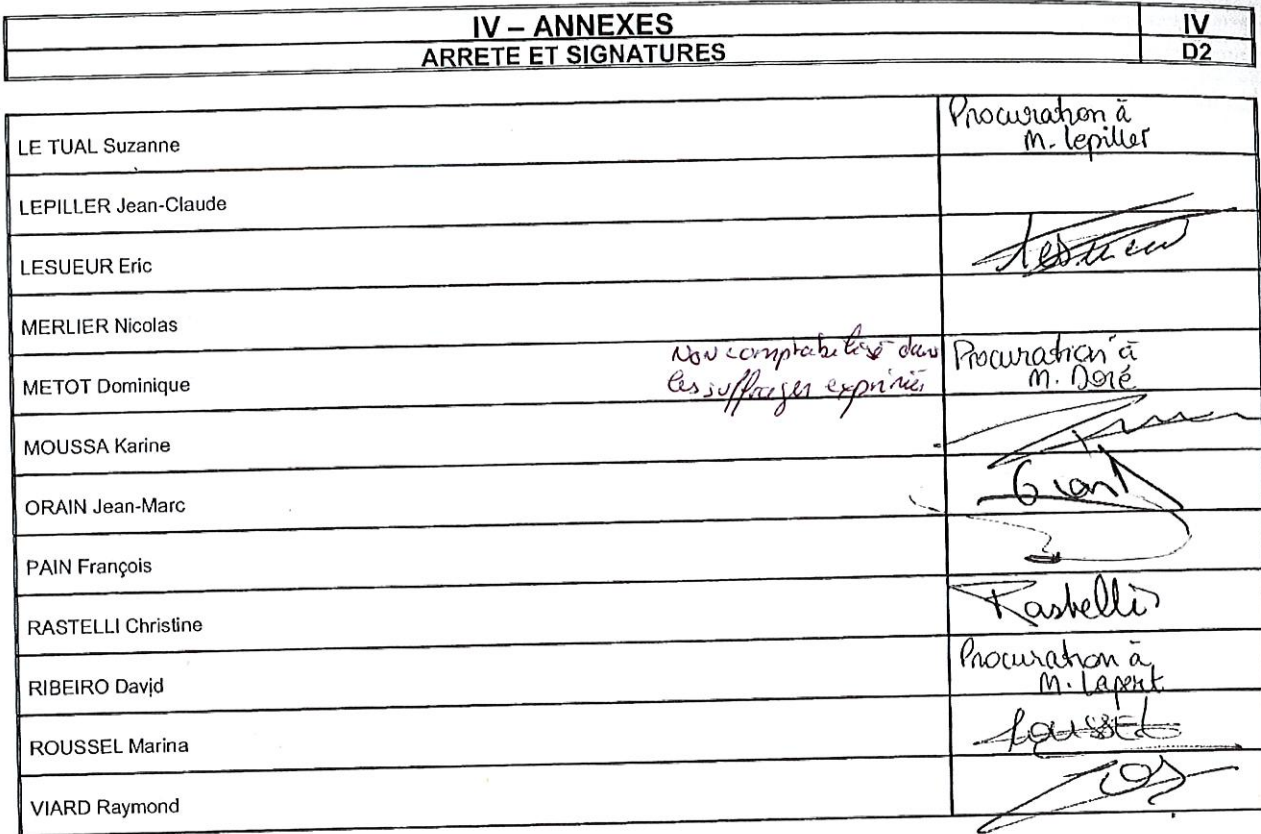 IV – ANNEXES
IV
ARRETE ET SIGNATURES
D2
LE TUAL Suzanne
Procuration à
M. lepiller
LEPILLER Jean-Claude
LESUEUR Eric
Lesueur
MERLIER Nicolas
METOT Dominique
Non comptabilisé dans
les suffrages exprimés
Procuration à
M. Doré
MOUSSA Karine
ORAIN Jean-Marc
PAIN François
RASTELLI Christine
Rastelli
RIBEIRO David
Procuration à
M. Lapert
ROUSSEL Marina
ROUSSEL
VIARD Raymond